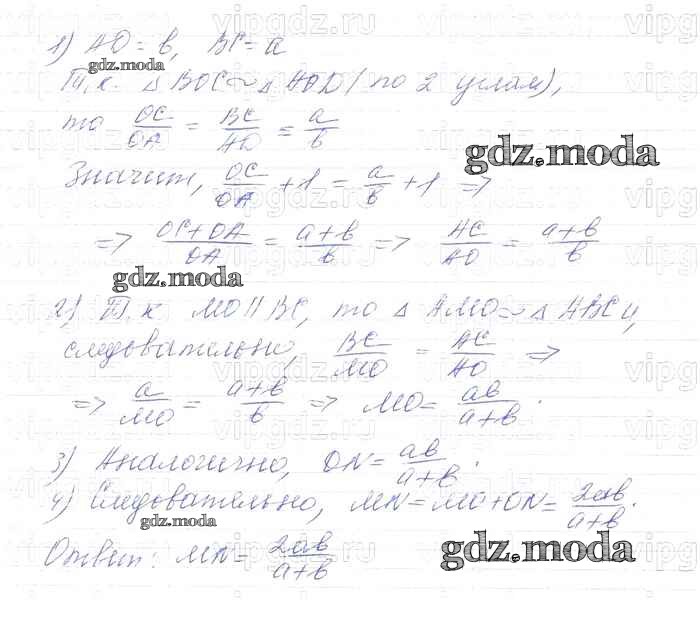 1) AO = b, BC = a
gdz.moda
Т.к. △ BOC ~ △ AOD (по 2 углам),
то OC/OA = BC/AO = a/b
gdz.moda
Значит, OC/OA + 1 = a/b + 1 =>
=> OC+OA/OA = a+b/b => AC/AO = a+b/b
gdz.moda
2) Т.к. MO || BC, то △ AMO ~ △ ABC и,
следовательно, BC/MO = AC/AO =>
=> a/MO = a+b/b => MO = ab/a+b.
3) Аналогично, ON = ab/a+b.
4) Следовательно, MN = MO + ON = 2ab/a+b.
gdz.moda
gdz.moda
Ответ: MN = 2ab/a+b
vipgdz.ru